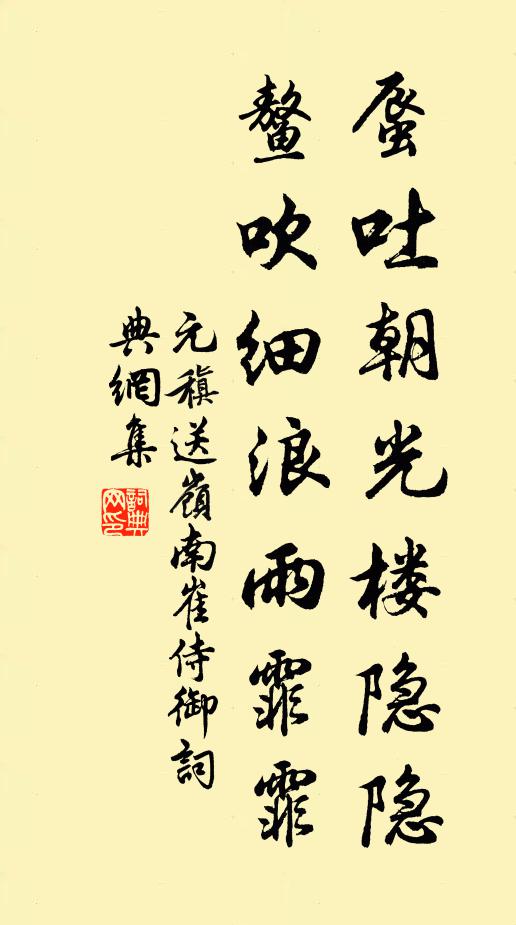 蜃吐朝光楼隐隐
鳌吹细浪雨霏霏
元稹送嶺南崔侍御詞
典網集
詞典网印